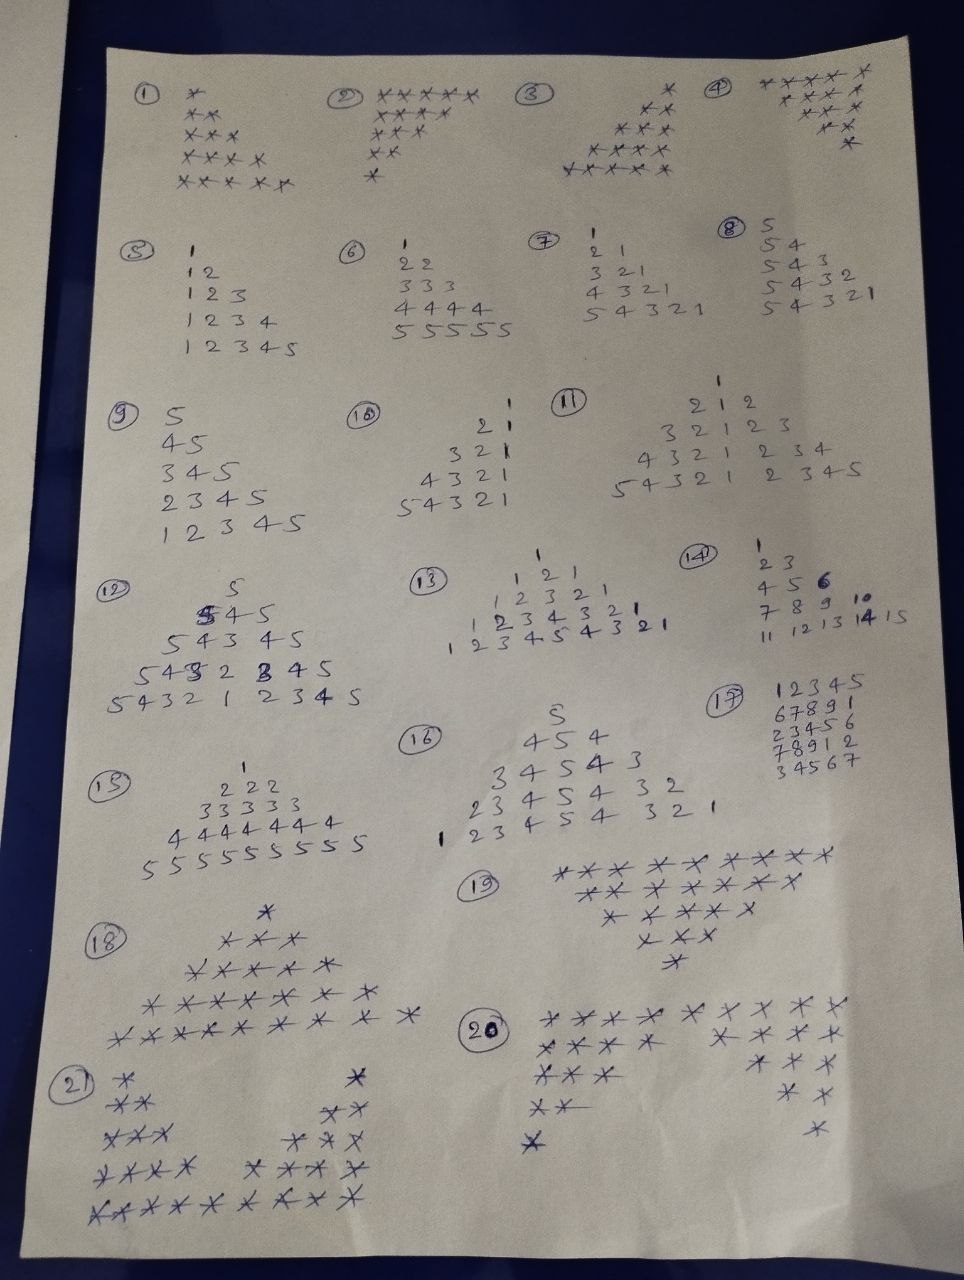 ① *
* *
* * *
* * * *
* * * * *
② * * * * *
* * * *
* * *
* *
*
③ *
* *
* * *
* * * *
* * * * *
④ * * * * *
* * * *
* * *
* *
*
⑤ 1
1 2
1 2 3
1 2 3 4
1 2 3 4 5
⑥ 1
2 2
3 3 3
4 4 4 4
5 5 5 5 5
⑦ 1
2 1
3 2 1
4 3 2 1
5 4 3 2 1
⑧ 5
5 4
5 4 3
5 4 3 2
5 4 3 2 1
⑨ 5
4 5
3 4 5
2 3 4 5
1 2 3 4 5
⑩ 1
2 1
3 2 1
4 3 2 1
5 4 3 2 1
⑪ 1
2 1 2
3 2 1 2 3
4 3 2 1 2 3 4
5 4 3 2 1 2 3 4 5
⑫ 5
5 4 5
5 4 3 4 5
5 4 3 2 3 4 5
5 4 3 2 1 2 3 4 5
⑬ 1
1 2 1
1 2 3 2 1
1 2 3 4 3 2 1
1 2 3 4 5 4 3 2 1
⑭ 1
2 3
4 5 6
7 8 9 10
11 12 13 14 15
⑮ 1
2 2 2
3 3 3 3 3
4 4 4 4 4 4 4
5 5 5 5 5 5 5 5 5
⑯ 5
4 5 4
3 4 5 4 3
2 3 4 5 4 3 2
1 2 3 4 5 4 3 2 1
⑰ 1 2 3 4 5
6 7 8 9 1
2 3 4 5 6
7 8 9 1 2
3 4 5 6 7
⑱ *
* * *
* * * * *
* * * * * * *
* * * * * * * * *
⑲ * * * * * * * * *
* * * * * * *
* * * * *
* * *
*
⑳ * * * * * * * * *
* * * * * * * *
* * * * * *
* * * *
* *
㉑ * *
* * * *
* * * * * *
* * * * * * * *
* * * * * * * * *